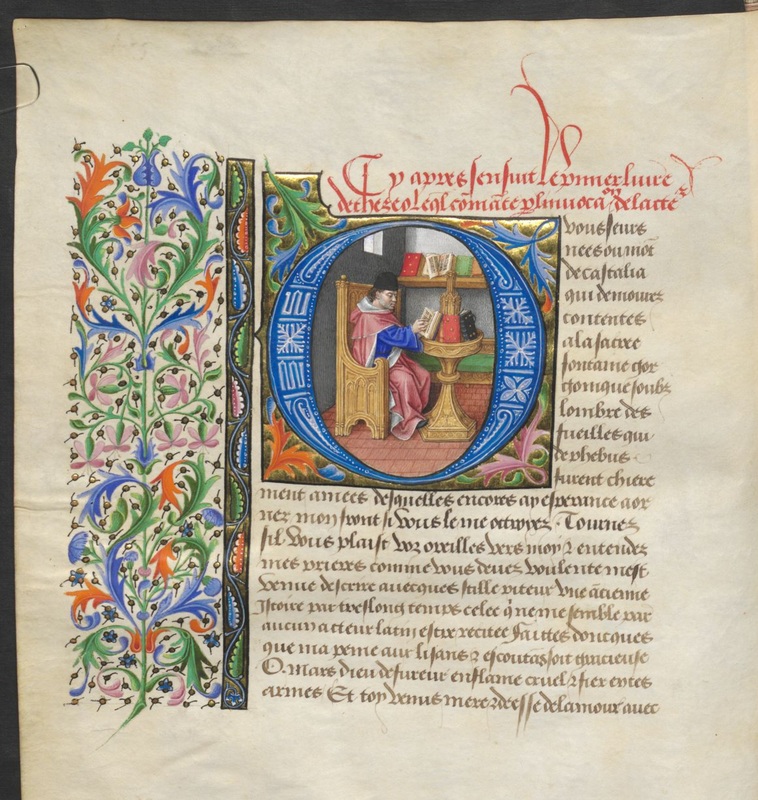 Cy apres sensuit le premier livre
de theseo leql cōmāce p linvocacōn de lacteᵉ
O vous seurs
nees ou mōt
de castalia
qui demourez
contentes
a la sacree
fontaine gor
gonique soubz
lombre des
fueilles qui
de phebus
furent chiere
ment amees desquelles encores ay esperance aor
ner mon front si vous le me octroyez · Tournez
sil vous plaist voz oreilles vers moy ⁊ entendez
mes prieres comme vous devez voulente mest
venue descrire avecques stille piteux vne āciēne
Istoire par tres long temps celee q̄ ne me semble par
aucun acteur latin estre recitee faittes doncques
que ma peine aux lisans ⁊ escoutās soit gracieuse
O Mars dieu de fureur enflame cruel ⁊ fier en tes
armes Et toy venus mere ⁊ deesse de lamour avec